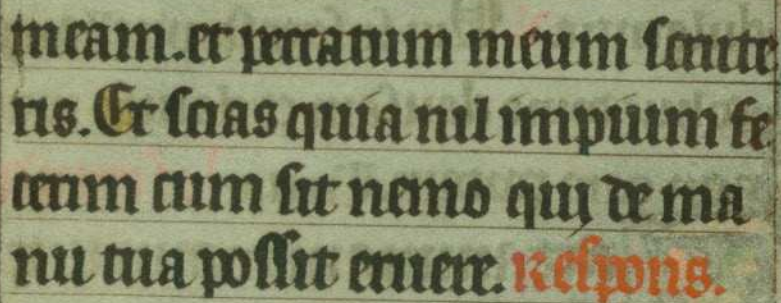 meam. et peccatum meum scrute
ris. Et scias quia nil impium fe
cerim cum sit nemo qui de ma
nu tua possit eruere. Respons.